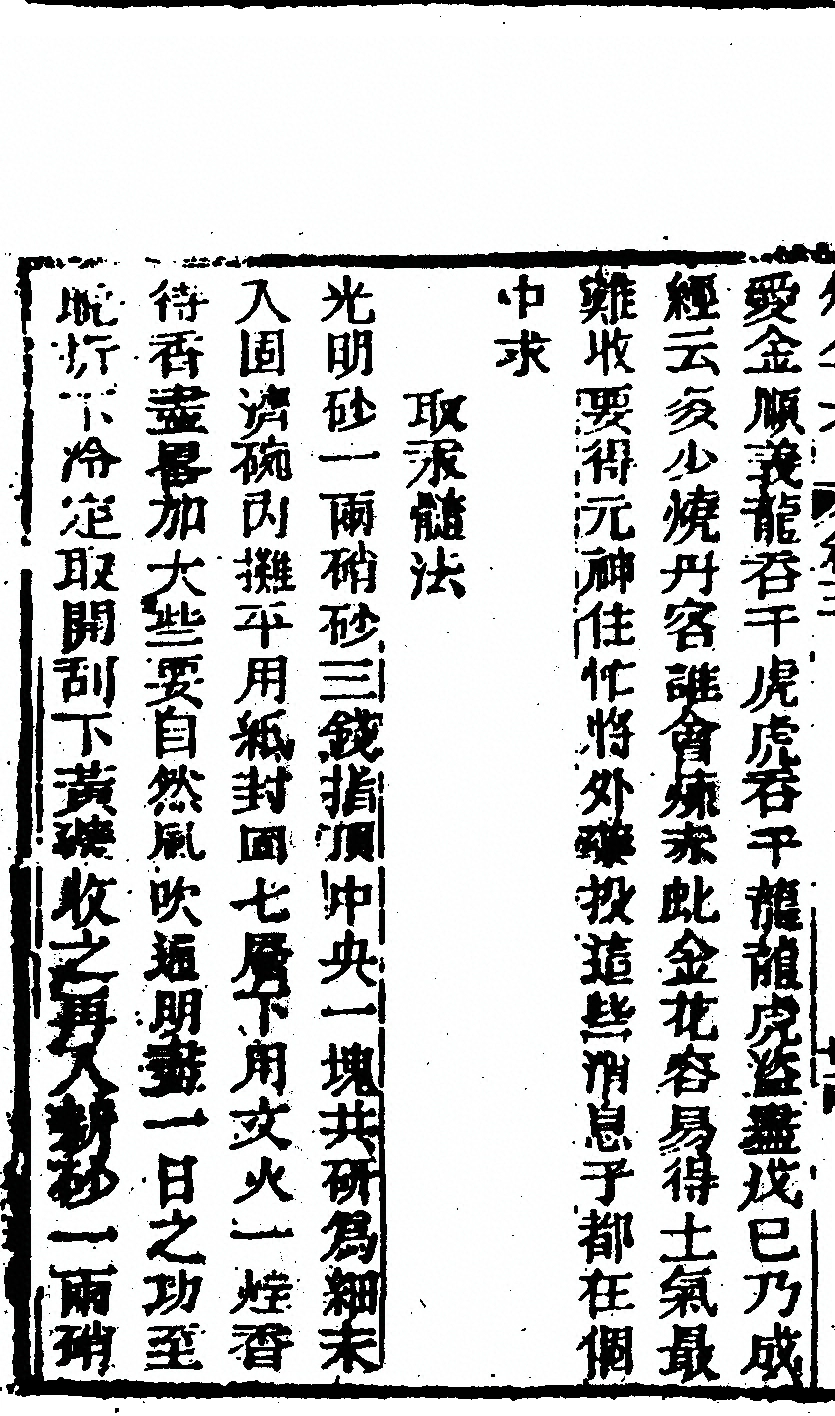 愛金順義龍吞干虎虎吞干龍龍虎盜盡戊巳乃成
經云多少燒丹客誰會煉赤此金花容易得土氣最
難收要得元神住忙將外藥投這些消息子都在個
中求
取汞髓法
光明砂一兩硝砂三錢指頂中央一塊共研爲細末
入固濟碗內攤平用紙封固七層下用文火一炷香
待香盡畧加大些要自然風吹通明盡一日之功至
晚折下冷定取開刮下黃礦收之再入新砂一兩硝